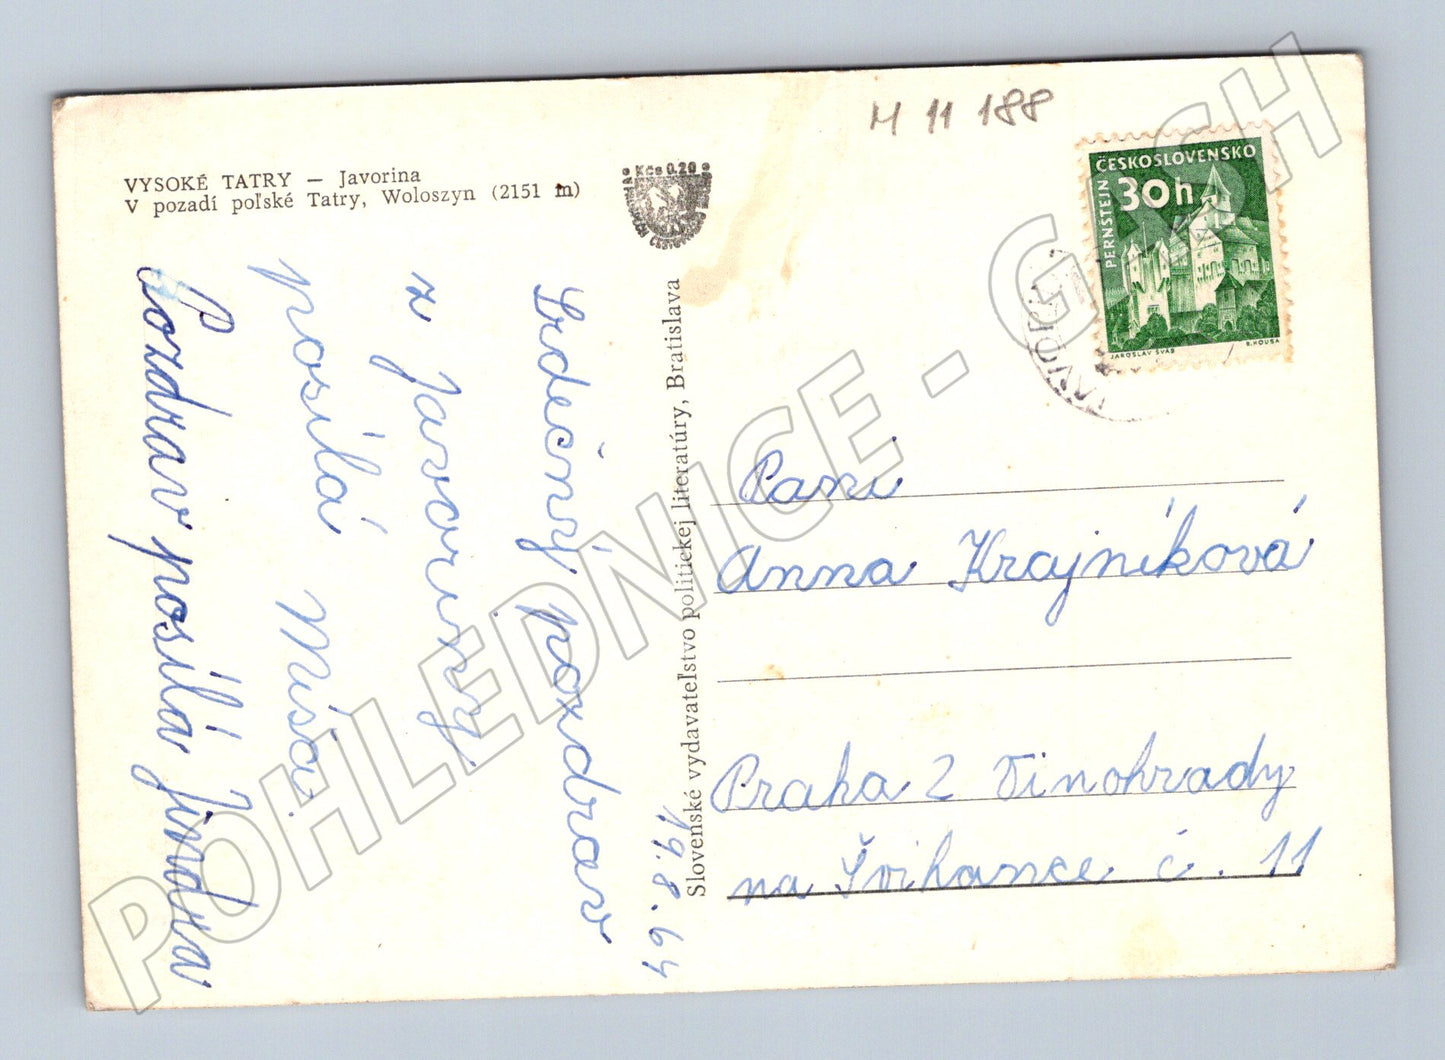 M 11 188
VYSOKÉ TATRY — Javorina
V pozadí poľské Tatry, Woloszyn (2151 m)
Kčs 0.20
ČESKOSLOVENSKO
30h
PERNŠTEJN
JAROSLAV ŠVÁB
B. HOUSA
JAVORI
19.8.64
Srdečný pozdrav
z Javoriny
posílá Míša.
Pozdrav posílá Jindra
Slovenské vydavateľstvo politickej literatúry, Bratislava
Paní
Anna Krajníková
Praha 2 Vinohrady
na Švihance č. 11
POHLEDNICE - GASH